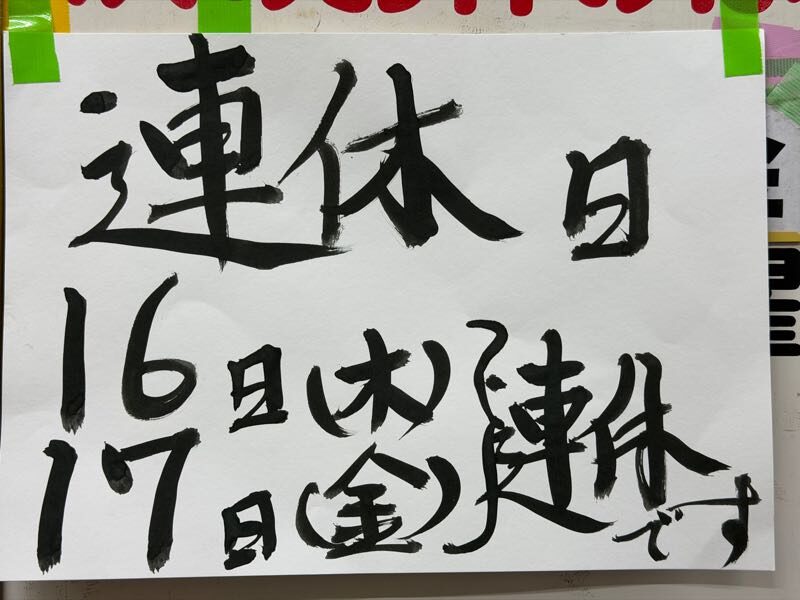 連休日
16日(木)
17日(金)
連休です